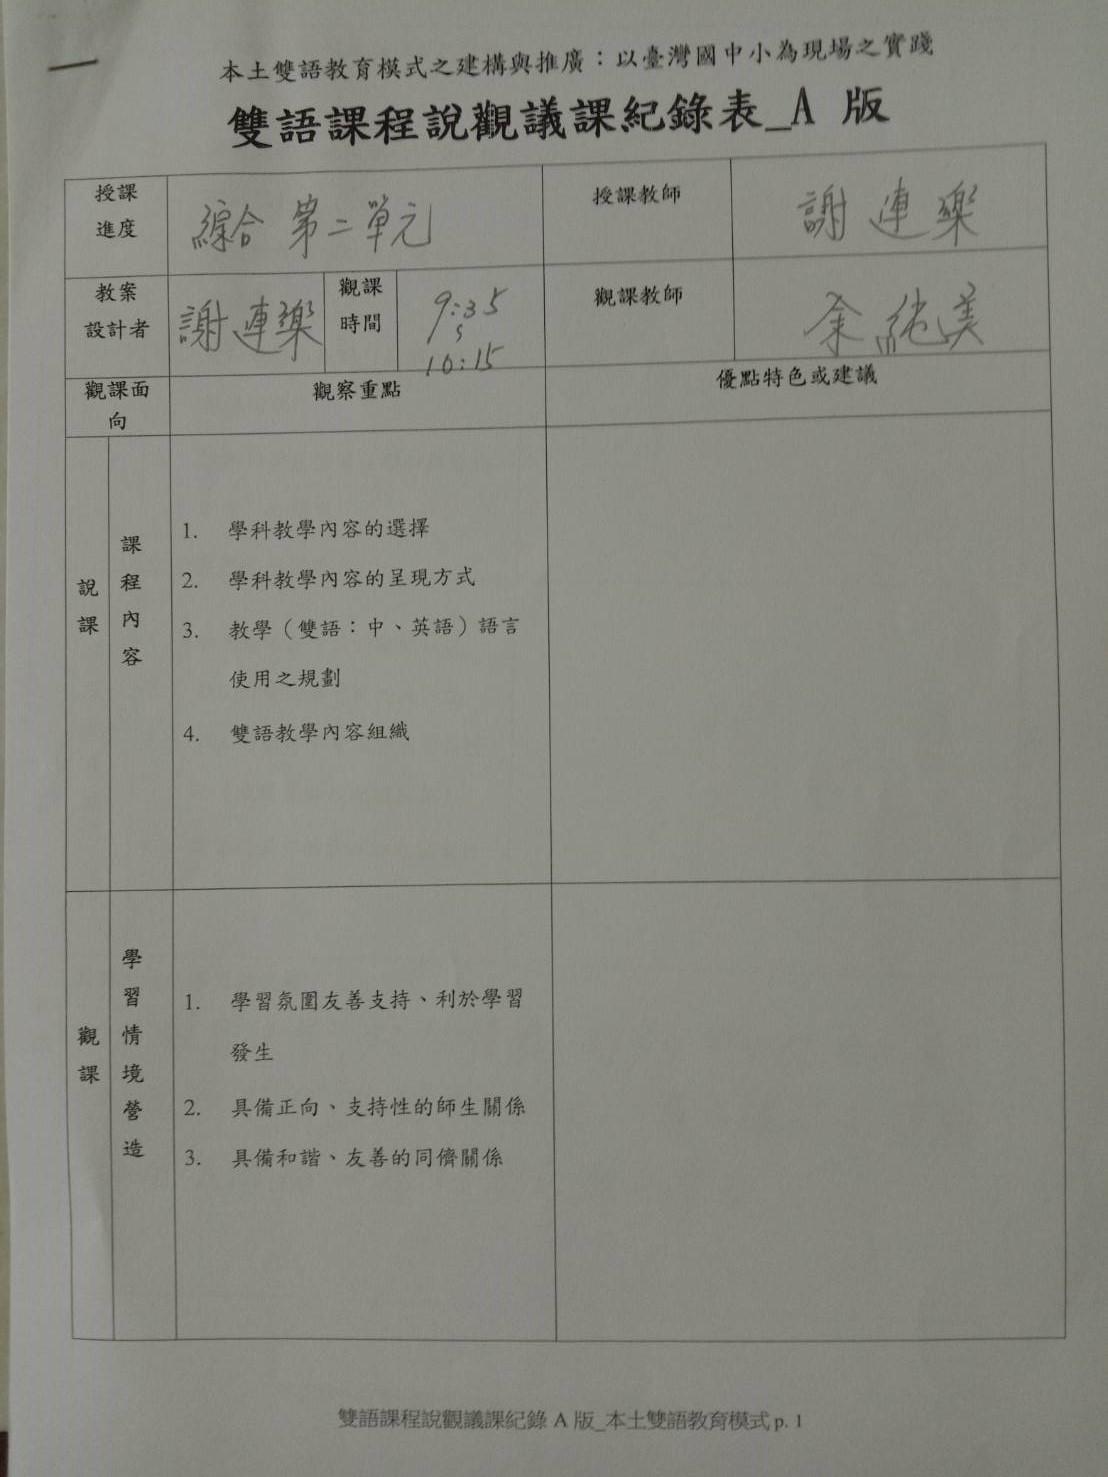 本土雙語教育模式之建構與推廣：以臺灣國中小為現場之實踐
雙語課程說觀議課紀錄表_A 版
授課
進度
綜合 第二單元
授課教師
謝連樂
教案
設計者
謝連樂
觀課
時間
9:35
10:15
觀課教師
余純美
觀課面
向
觀察重點
優點特色或建議
說課
課程內容
1. 學科教學內容的選擇
2. 學科教學內容的呈現方式
3. 教學（雙語：中、英語）語言
使用之規劃
4. 雙語教學內容組織
觀課
學習情境營造
1. 學習氛圍友善支持、利於學習
發生
2. 具備正向、支持性的師生關係
3. 具備和諧、友善的同儕關係
雙語課程說觀議課紀錄 A 版_本土雙語教育模式 p. 1